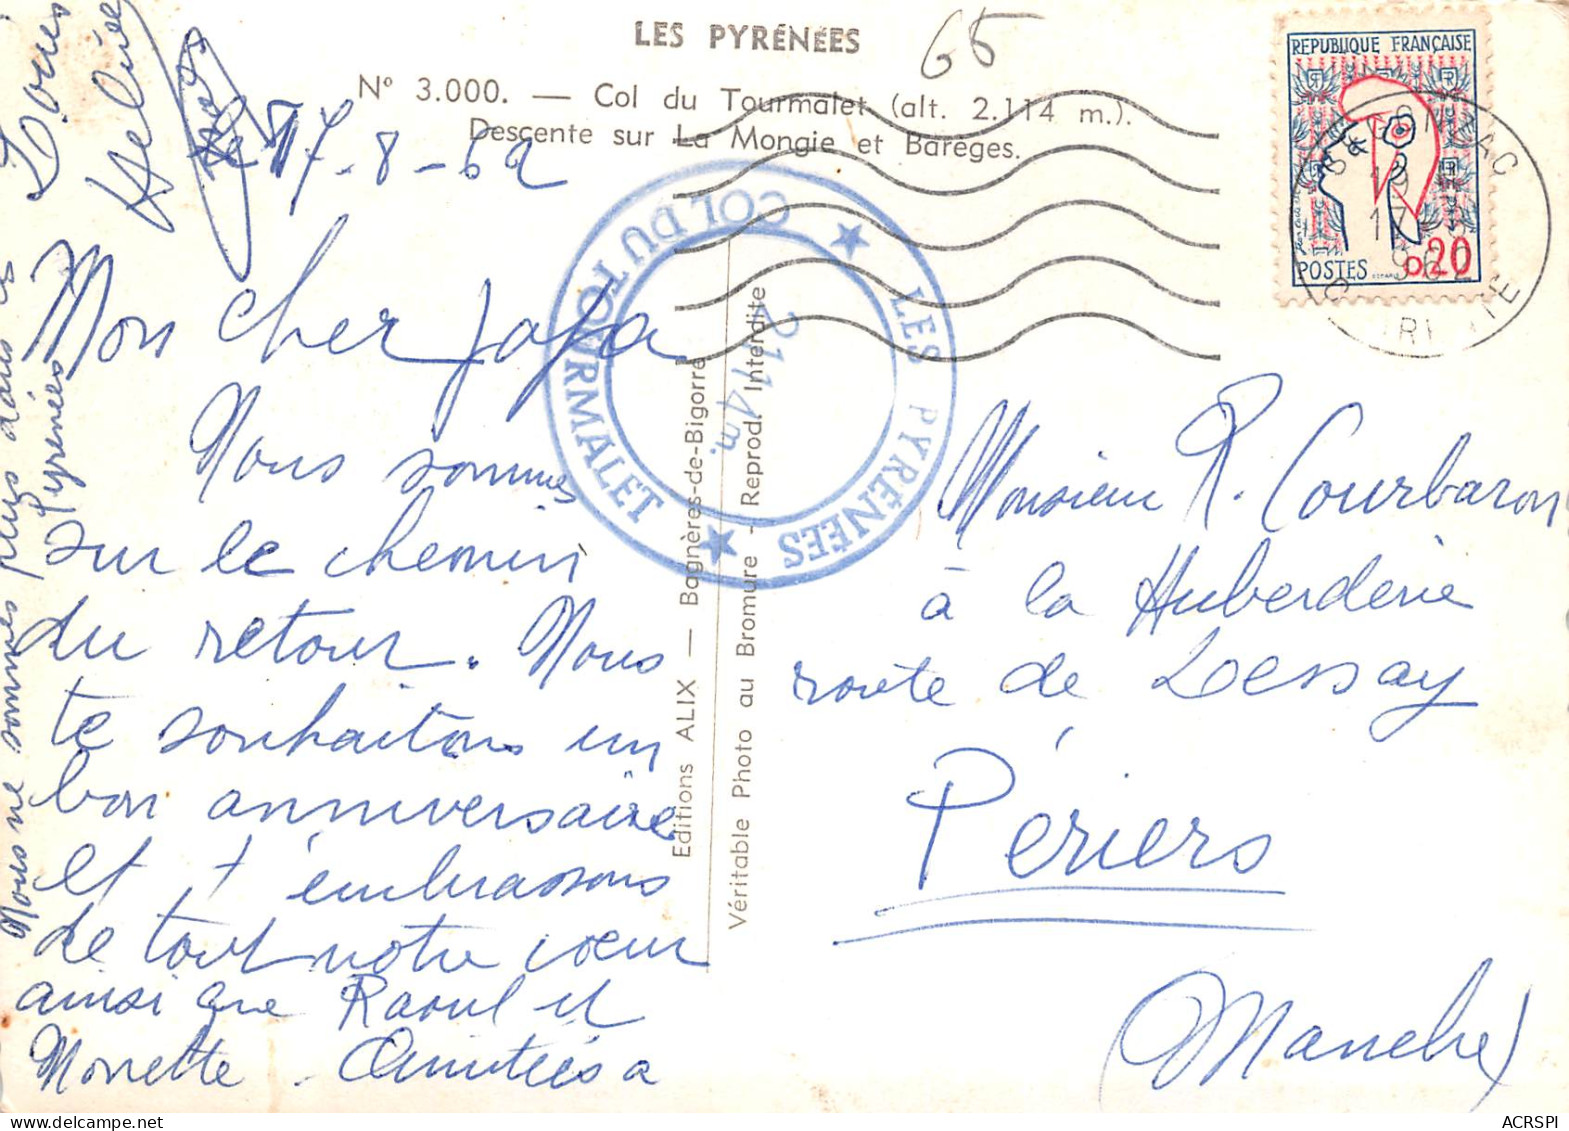 LES PYRÉNÉES
65
N° 3.000. — Col du Tourmalet (alt. 2.114 m.).
Descente sur La Mongie et Barèges.
REPUBLIQUE FRANÇAISE
POSTES 0,20
17
1962
LES PYRÉNÉES
COL DU TOURMALET
2114 m.
le 17-8-62
Mon cher papa
Nous sommes
sur le chemin
du retour. Nous
te souhaitons un
bon anniversaire
et t'embrassons
de tout notre cœur
ainsi que Raoul et
Monette. Amitiés a
Louis
Nous ne sommes plus dans les
Pyrénées
Editions ALIX — Bagnères-de-Bigorre
Véritable Photo au Bromure - Reprod. Interdite
Monsieur R. Courbaron
à la Huberderie
route de Lessay
Périers
(Manche)
ACRSPI